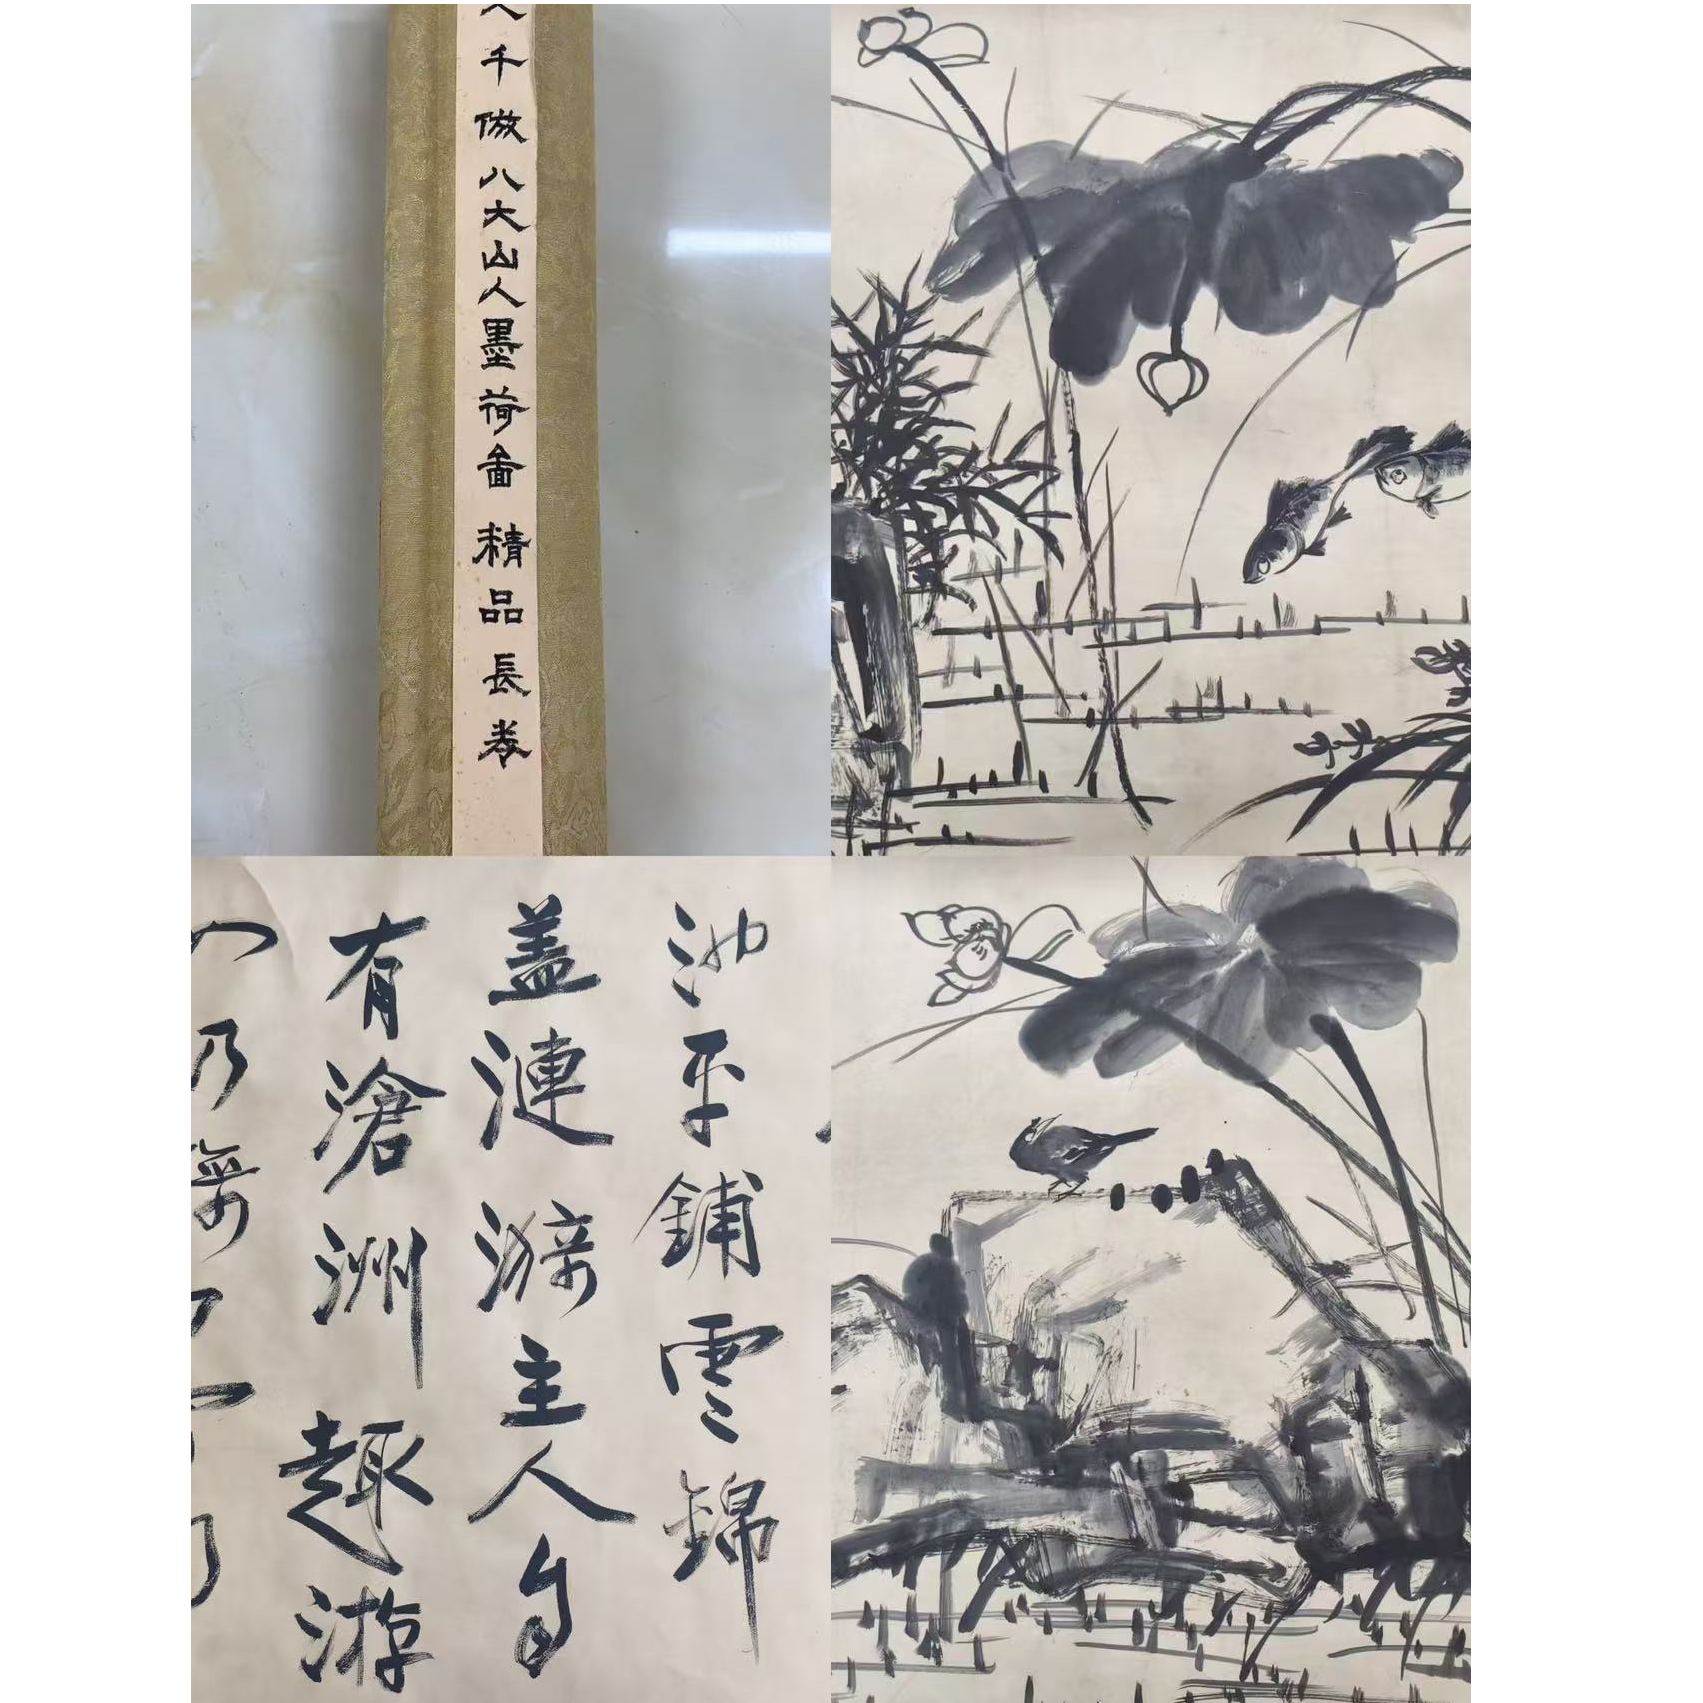 千倣八大山人墨荷啚 精品 長卷
池平鋪雲錦
盖漣漪主人自
有滄洲趣游